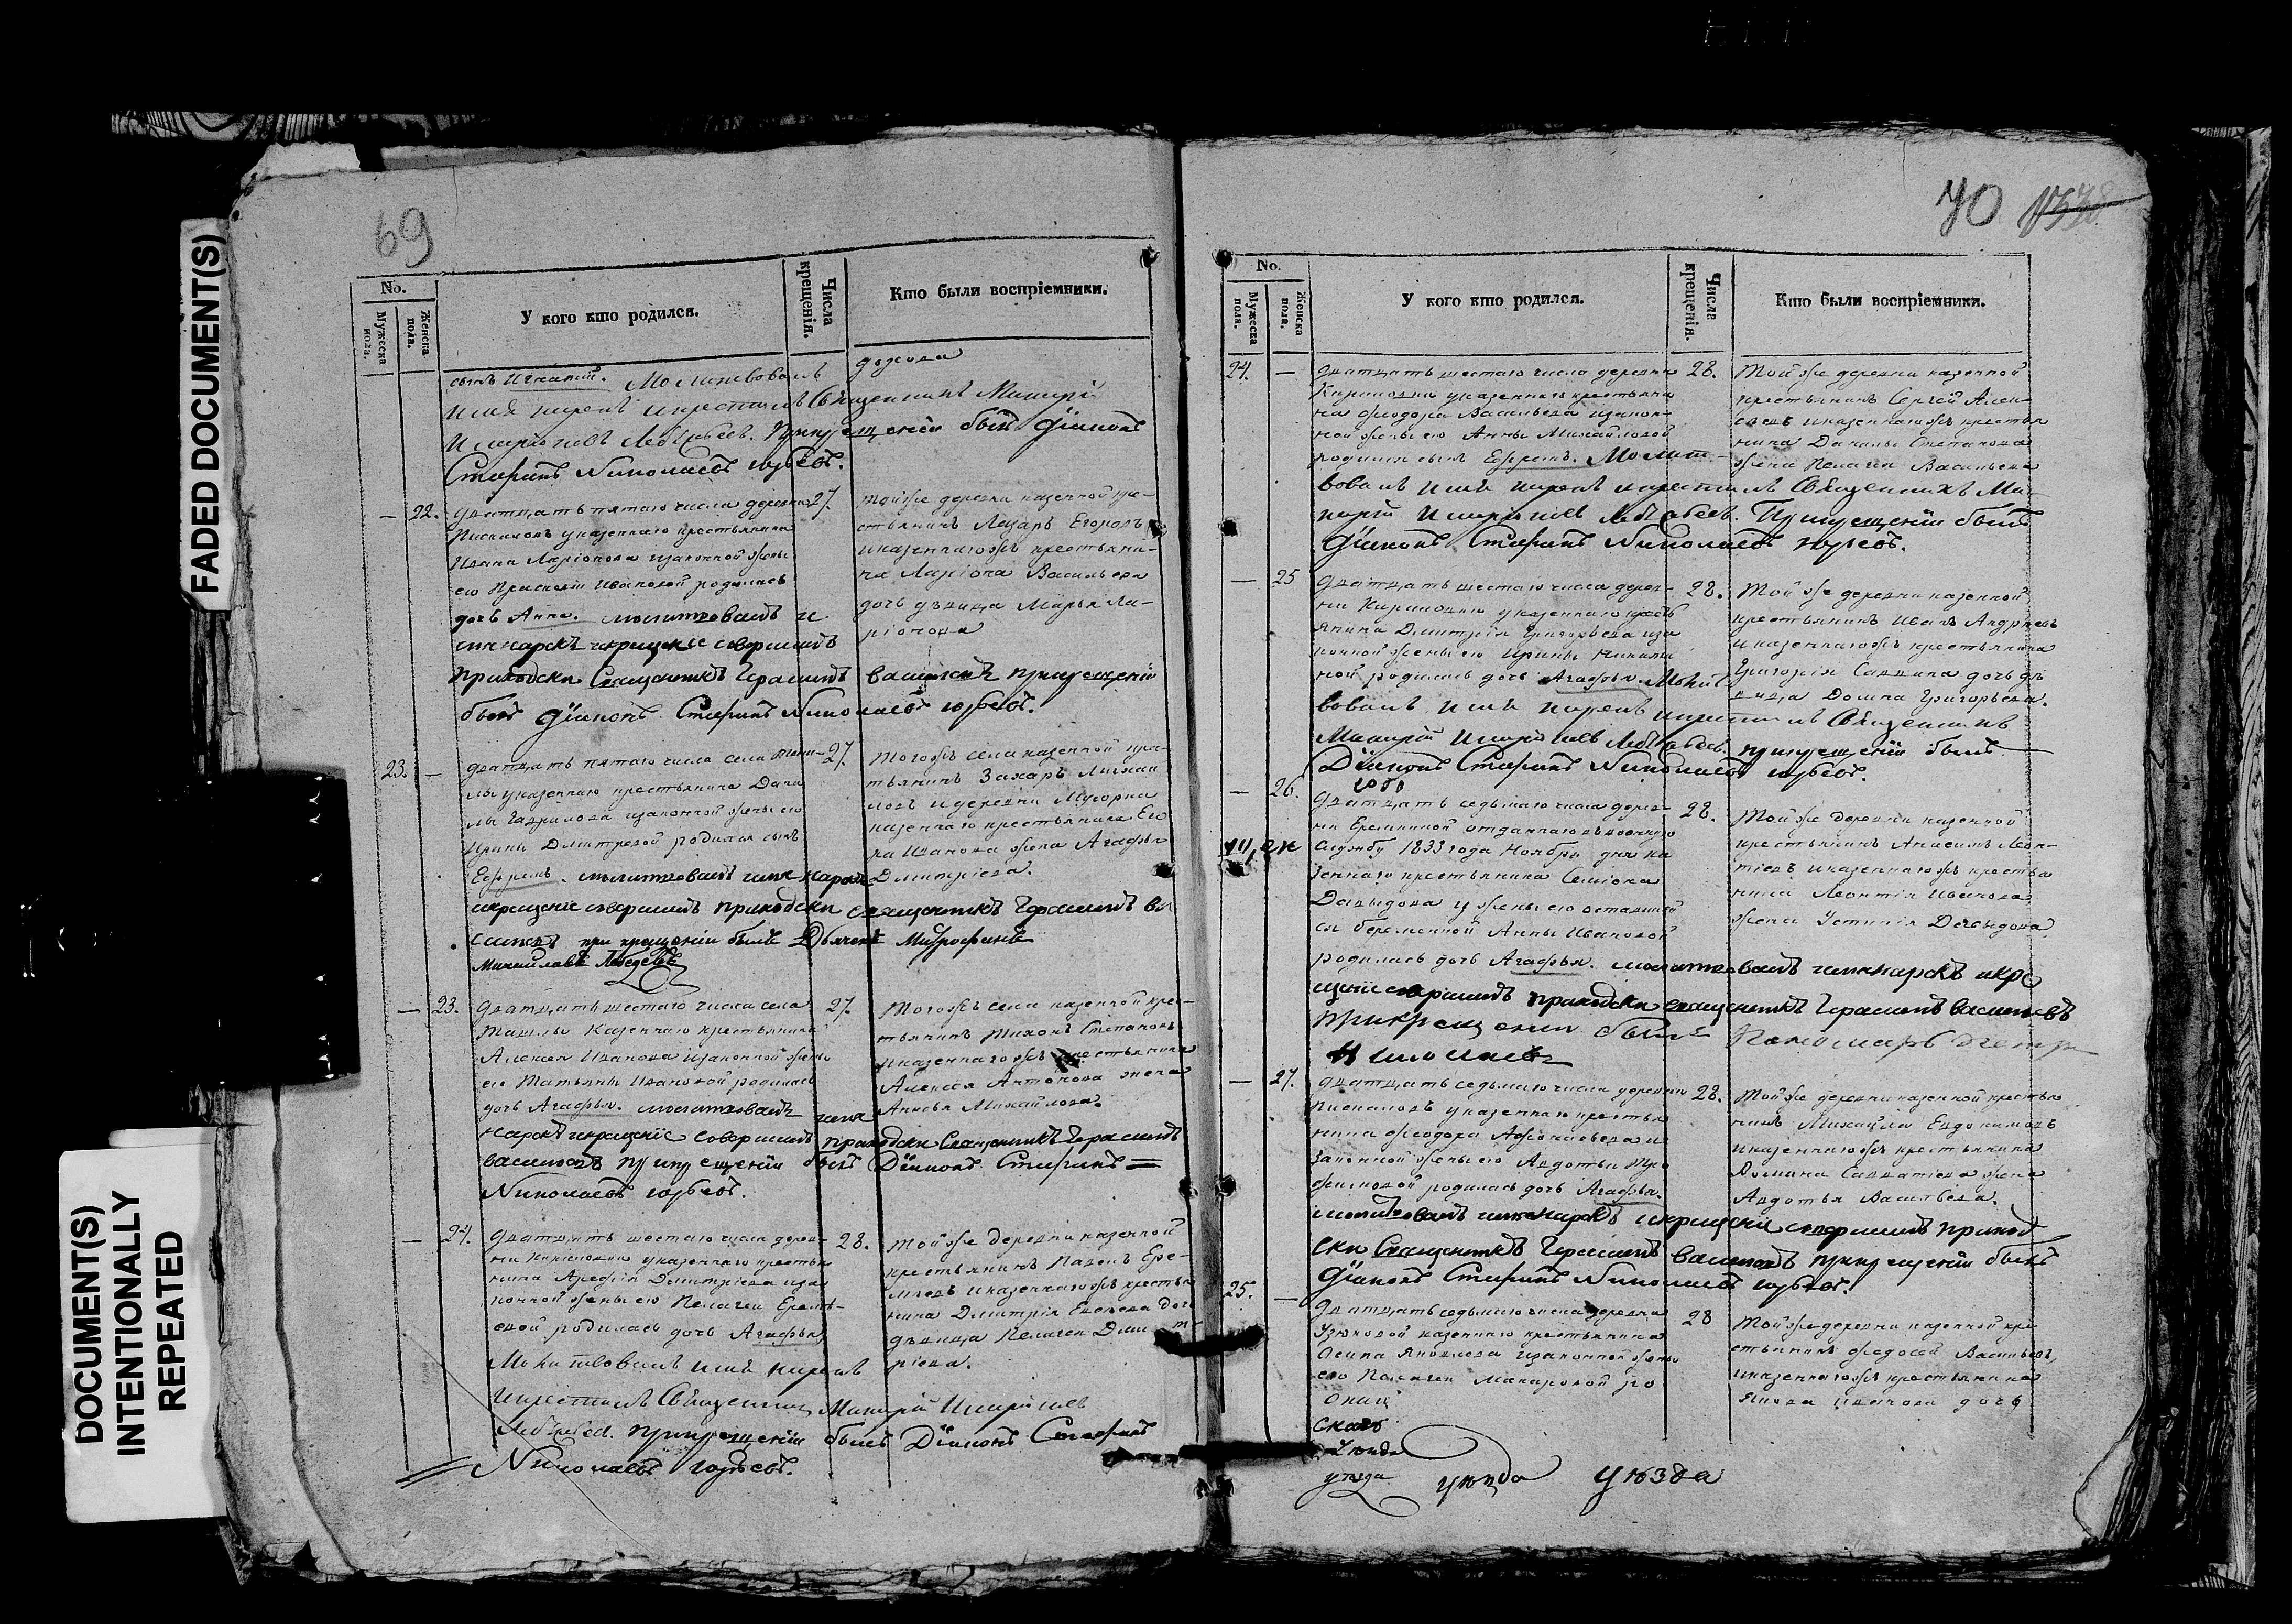 FADED DOCUMENT(S)
DOCUMENT(S)
INTENTIONALLY
REPEATED
69
No.
Мужеска пола.
Женска пола.
У кого кто родился.
Числа крещенія.
Кто были воспріемники.
сынъ Игнатий. Молитвовалъ
имя нарекъ и крестилъ Священникъ Макарій
Иларіоновъ Лебедевъ. При крещеніи былъ Діаконъ
Стефанъ Николаевъ
22.
Дватцать пятаго числа деревни
у казеннаго крестьянина
Ивана Ларіонова и законной жены
его Прасковіи Ивановой родилась
дочь Анна. молитвовалъ и
имя нарекъ и крещение совершилъ
приходски Священникъ Герасимъ Васильевъ при крещеніи
былъ Діаконъ Стефанъ Николаевъ
27.
той же деревни казенной кре-
стьянинъ Лазарь Егоровъ
и казеннаго жъ крестьяни-
на Ларіона Васильева
дочь девица Марья Ла-
ріонова
23.
Дватцать пятаго числа села
у казеннаго крестьянина Дани
лы Гаврилова и законной жены его
Ирины Дмитревой родился сынъ
Ефремъ. молитвовалъ имя нарекъ
и крещение совершилъ приходски священникъ Герасимъ Ва
сильевъ при крещении былъ Дьячекъ Митрофанъ
Михайловъ Лебедевъ
27.
того жъ села казенной кре-
стьянинъ Захаръ Михаи
ловъ и деревни
казеннаго крестьянина Его
ра Иванова жена Агафья
Дмитріева.
23.
Дватцать шестаго числа села
Ташлы казеннаго крестьянина
Алексея Иванова и законной жены
его Татьяны Ивановой родилась
дочь Агафья. молитвовалъ имя
нарекъ и крещение совершилъ приходски Священникъ Герасимъ
Васильевъ при крещеніи былъ Діаконъ Стефанъ
Николаевъ
27.
того жъ села казенной крес-
тьянинъ Тихонъ Степановъ
и казеннаго жъ крестьянина
Алексея Антонова жена
Анисья Михайлова.
24.
Дватцать шестаго числа дерев-
ни Кириловки у казеннаго крестья
нина Арефія Дмитріева и за
конной жены его Пелагеи Ереме-
евой родилась дочь Агафья
Молитвовалъ имя нарекъ
и крестилъ Священникъ Макарій Иларіоновъ
Лебедевъ. При крещеніи былъ Діаконъ Стефанъ
Николаевъ
28.
той же деревни казенной
крестьянинъ Павелъ Ере-
меевъ и казеннаго жъ крестья
нина Дмитрія дочь
девица Пелагея Дмит
ріева.
70
No.
Мужеска пола.
Женска пола.
У кого кто родился.
Числа крещенія.
Кто были воспріемники.
24.
Дватцать шестаго числа деревни
Кириловки у казеннаго крестьяни
на Феодора Васильева и закон-
ной жены его Анны Михайловой
родился сынъ Ефремъ. Молит-
вовалъ имя нарекъ и крестилъ Священникъ Ма-
карій Иларіоновъ Лебедевъ. При крещеніи былъ
Діаконъ Стефанъ Николаевъ
28.
той же деревни казенной
крестьянинъ Сергей Алек-
сеевъ и казеннаго жъ крестья
нина Данилы Степанова
жена Пелагея Васильева
25
Дватцать шестаго числа дерев-
ни Кириловки у казеннаго кресть
янина Димитрія Григорьева и за
конной жены его Ирины
ной родилась дочь Агафья. Молит
вовалъ имя нарекъ и крестилъ Священникъ
Макарій Иларіоновъ Лебедевъ. при крещеніи былъ
Діаконъ Стефанъ Николаевъ
28.
той же деревни казенной
крестьянинъ Иванъ Андреевъ
и казеннаго жъ крестьянина
Григорія Саввина дочь де
вица Домна Григорьева.
26.
Дватцать седьмаго числа дерев-
ни Еремкиной отданнаго въ военную
службу 1833 года Ноября дня ка
зеннаго крестьянина Симіона
Давыдова у жены его оставшей
ся беременной Анны Ивановой
родилась дочь Агафья. молитвовалъ имя нарекъ и кре
щение совершилъ приходски священникъ Герасимъ Васильевъ
При крещении былъ Пономарь Петръ
Николаевъ
28.
той же деревни казенной
крестьянинъ Анисимъ Леон-
тіевъ и казеннаго жъ крестья
нина Леонтія Иванова
жена Устинія Давыдова
27.
Дватцать седьмаго числа деревни
у казеннаго крестья
нина Феодора Афонасьева и
законной жены его Авдотьи Тро
фимовой родилась дочь Агафья.
молитвовалъ имя нарекъ и крещение совершилъ приход
ски Священникъ Герасимъ Васильевъ при крещеніи былъ
Діаконъ Стефанъ Николаевъ
28.
той же деревни казенной крестья
нинъ Михайла Евдокимовъ
и казеннаго жъ крестьянина
жена
Авдотья Васильева.
25.
Дватцать седьмаго числа деревни
Узюковой казеннаго крестьянина
Осипа Яковлева и законной жены
его Пелагеи Макаровой ро
28
той же деревни казенной кре
стьянинъ Федосей Васильевъ,
и казеннаго жъ крестьянина
Якова Иванова дочь
уезда
уезда уезда